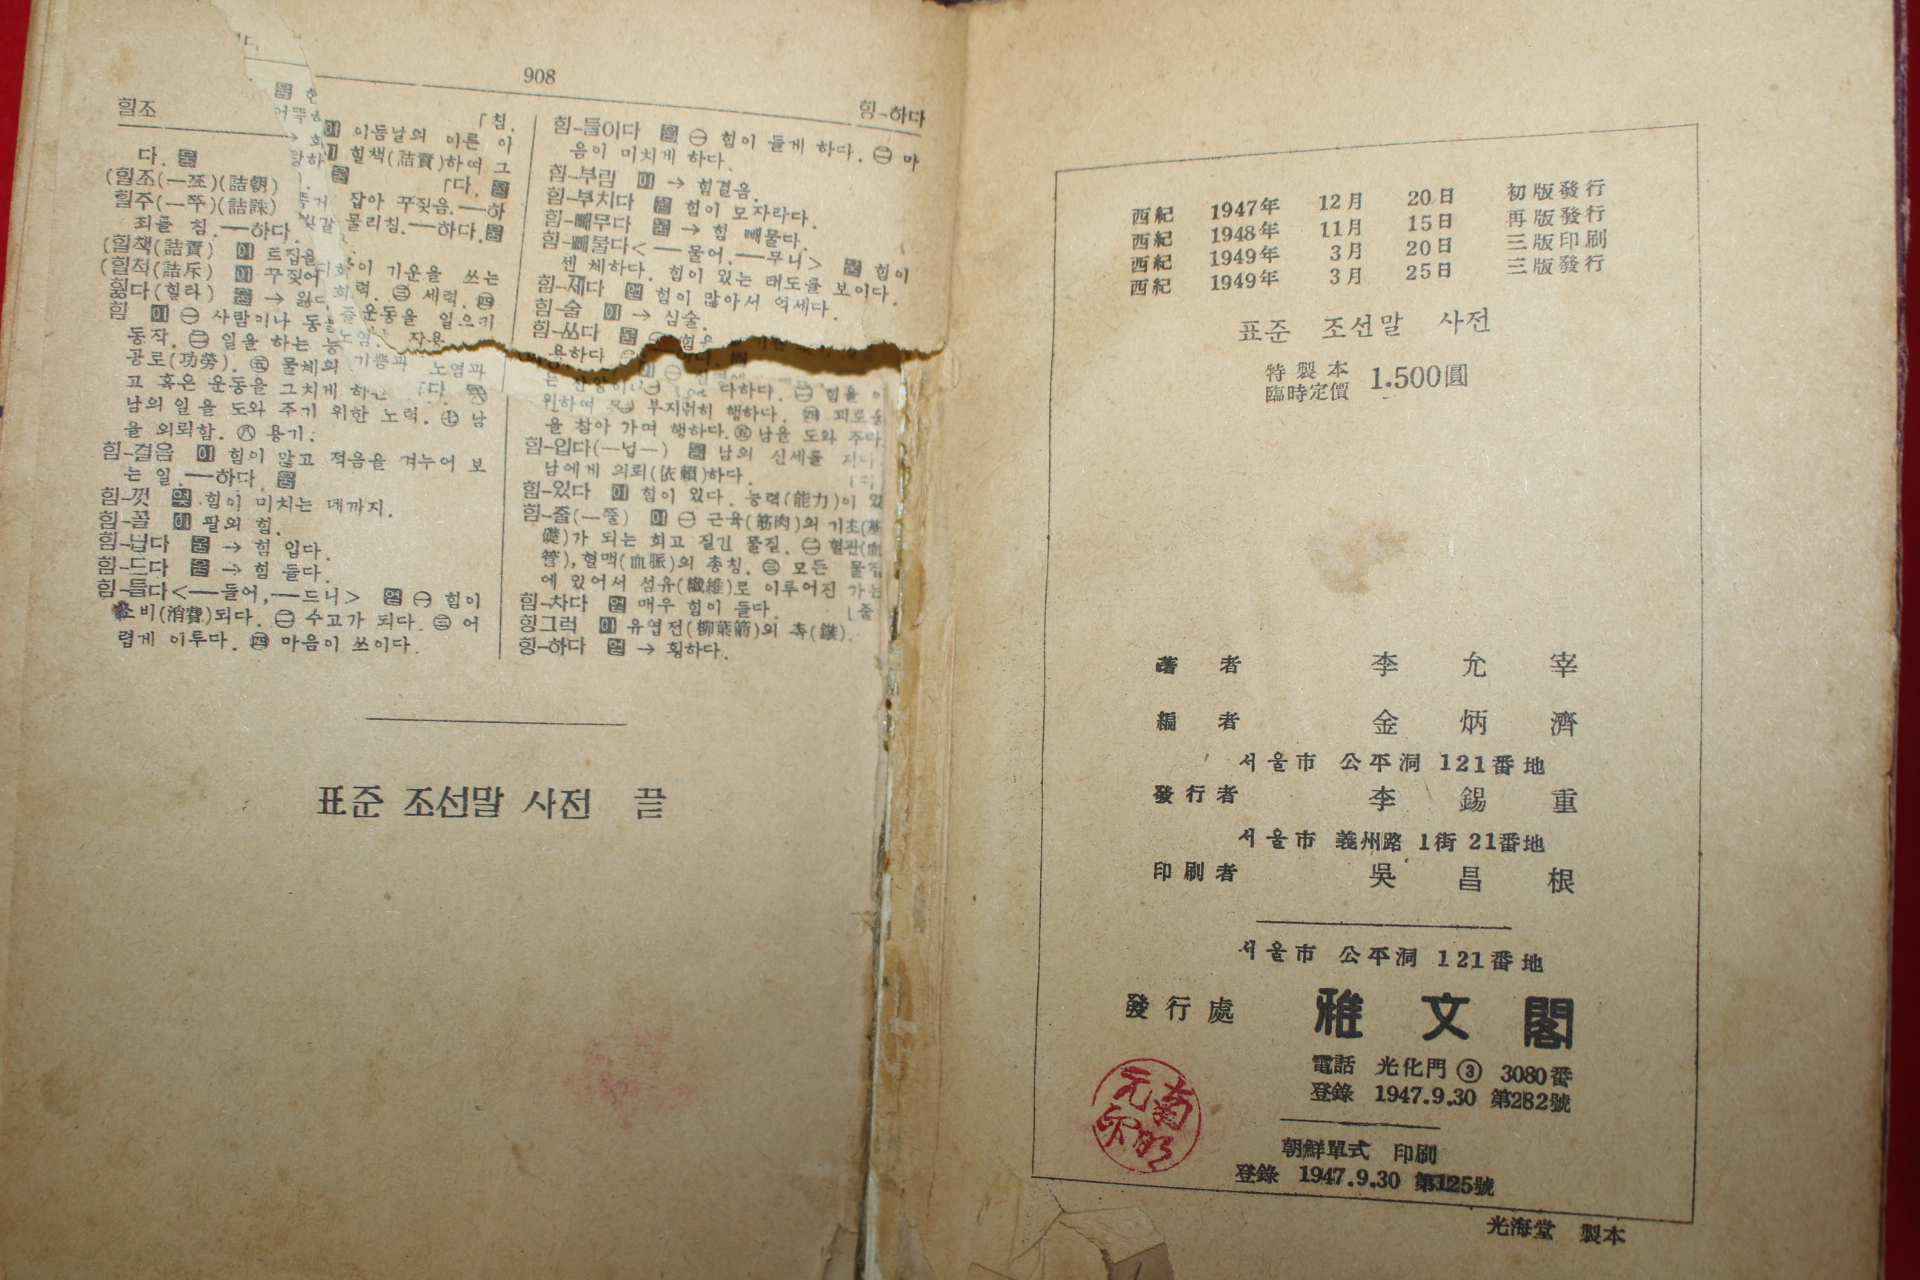 908
힐조
힝–하다
다. 울
(힐조(—쪼)(詰朝)
힐주(—쭈)(詰誅)
죄를 침.—하다.
(힐책(詰責) 이 트집을
(힐척(詰斥) 이 꾸짖어
힗다(힐라) 울 → 잃다
힘 이 ㊀ 사람이나 동물
동작. ㊁ 일을 하는 능
공로(功勞). ㊄ 물체의
고 혹은 운동을 그치게 하는
남의 일을 도와 주기 위한 노력. ㊆ 남
을 의뢰함. ㊇ 용기.
힘–결음 이 힘이 많고 적음을 겨누어 보
는 일.—하다. 울
힘–껏 엊 힘이 미치는 데까지.
힘–꼴 이 팔의 힘.
힘–닙다 울 → 힘 입다.
힘–드다 울 → 힘 들다.
힘–들다<—들어,—드니> 얼 ㊀ 힘이
소비(消費)되다. ㊁ 수고가 되다. ㊂ 어
렵게 이루다. ㊃ 마음이 쓰이다.
「침.
이 이듬날의 이른 아
힐책(詰責)하여 그
「다. 울
잡아 꾸짖음.—하
물리침.—하다. 울
이 기운을 쓰는
력. ㊂ 세력. ㊃
운동을 일으키
힘–들이다 울 ㊀ 힘이 들게 하다. ㊁ 마
음이 미치게 하다.
힘–부림 이 → 힘결음.
힘–부치다 울 힘이 모자라다.
힘–빼무다 울 → 힘 빼물다.
힘–빼물다<—물어,—무니> 울 힘이
센 체하다. 힘이 있는 태도를 보이다.
힘–제다 얼 힘이 많아서 억세다.
힘–술 이 → 심술.
힘–쓰다 울 ㊀ 힘을
용하다
위하여 부지런히 행하다. ㊃ 괴로움
을 참아 가며 행하다. ㊄ 남을 도와 주다.
힘–입다(—닙—) 울 남의 신세를 지다.
남에게 의뢰(依賴)하다.
힘–있다 이 힘이 있다. 능력(能力)이 있
힘–줄(—쭐) 이 ㊀ 근육(筋肉)의 기초(基
礎)가 되는 희고 질긴 물질. ㊁ 혈관(血
管), 혈맥(血脈)의 총칭. ㊂ 모든 물질
에 있어서 섬유(纖維)로 이루어진 가는
힘–차다 얼 매우 힘이 들다. 「줄
힝그럭 이 유엽전(柳葉箭)의 촉(鏃).
힝–하다 얼 → 횡하다.
표준 조선말 사전 끝
西紀 1947年 12月 20日 初版發行
西紀 1948年 11月 15日 再版發行
西紀 1949年 3月 20日 三版印刷
西紀 1949年 3月 25日 三版發行
표준 조선말 사전
特製本
臨時定價 1.500圓
著者 李允宰
編者 金炳濟
서울市 公平洞 121番地
發行者 李錫重
서울市 義州路 1街 21番地
印刷者 吳昌根
서울市 公平洞 121番地
發行處 雅文閣
電話 光化門 ③ 3080番
登錄 1947.9.30 第282號
朝鮮單式 印刷
登錄 1947.9.30 第125號
光海堂 製本